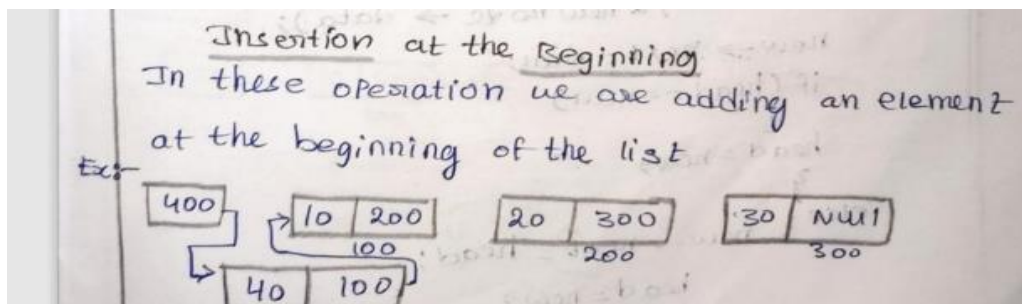 Insertion at the Beginning
In these operation we are adding an element
at the beginning of the list
Ex:-
400 10 200 20 300 30 Null
100 200 300
40 100